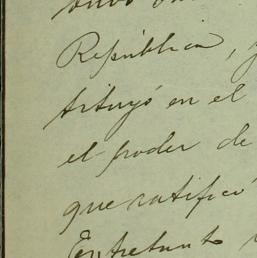 República, y
tituyó en el
el poder de
que ratificó
Entretanto